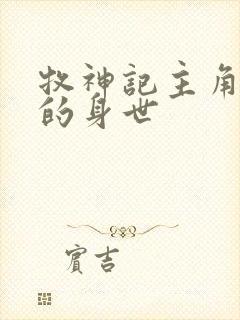 牧神記主角
的身世
賓吉